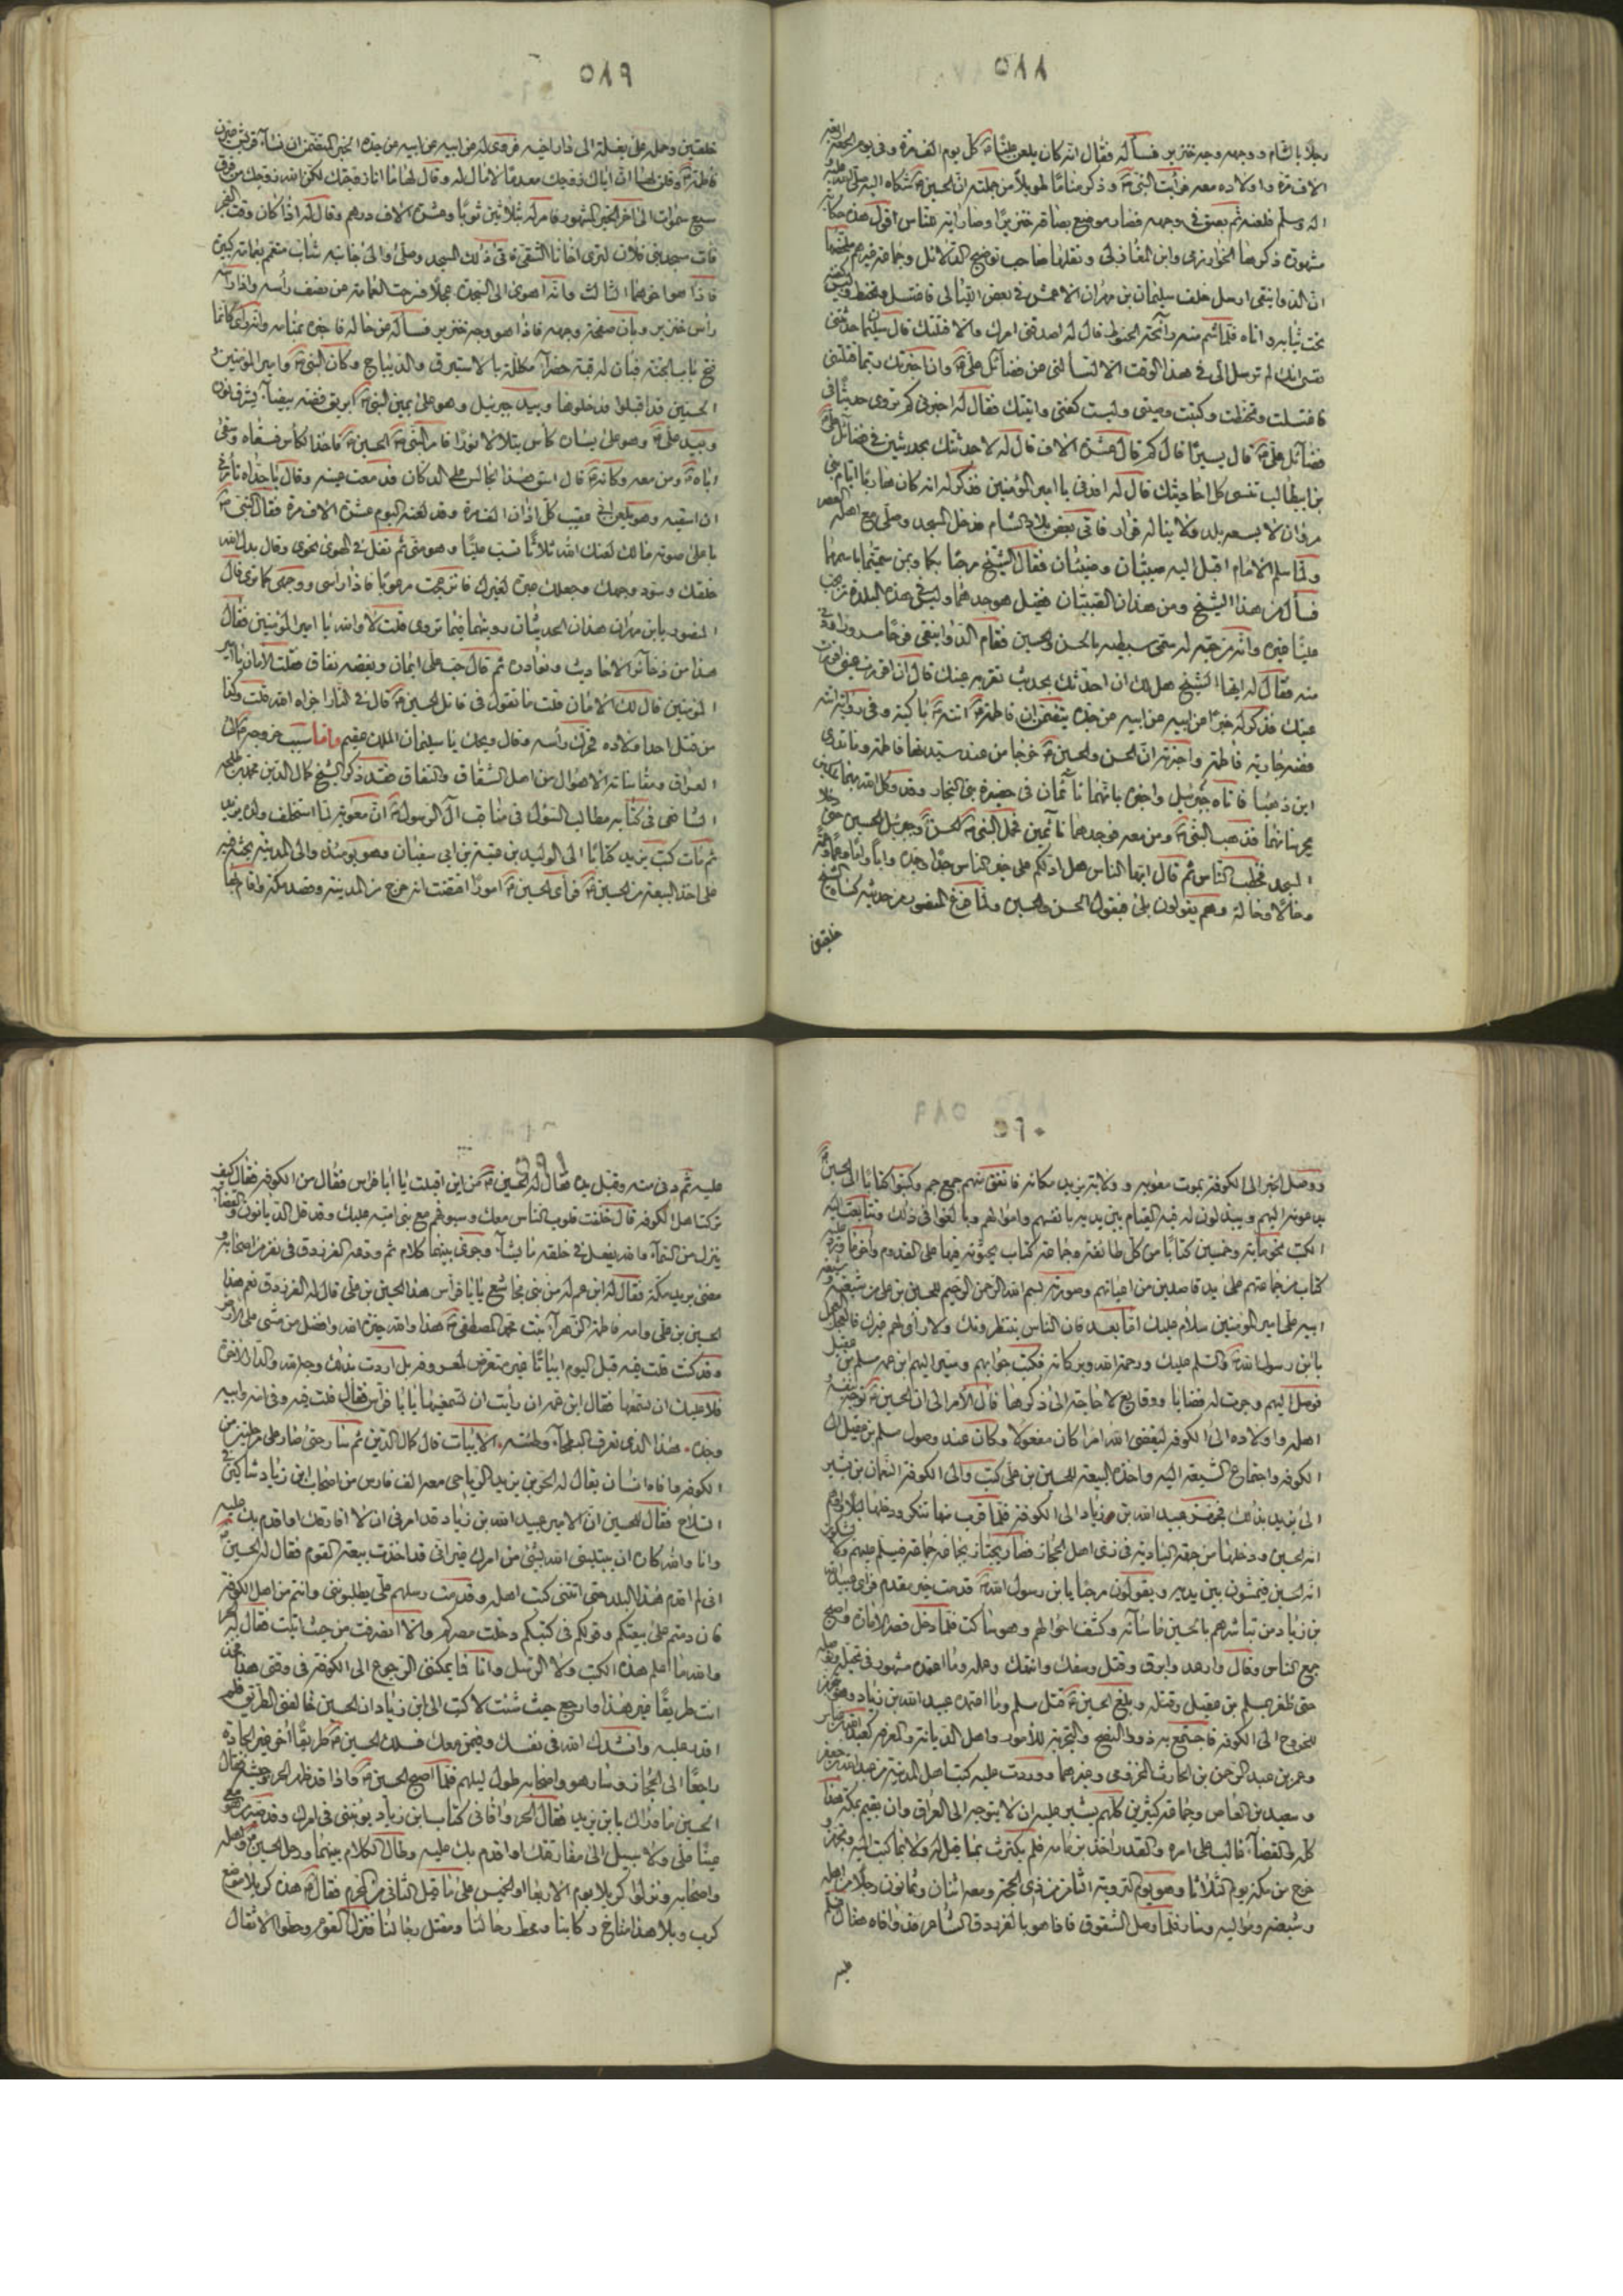 ٥٨٨
رجلا بالشام ووجهه وجه خنزير فسأله فقال انه كان يلعن عليّا كل يوم الف مرة وفي يوم الجمعة اربعة
الاف مرة واولاده معه فرأيت النبي وذكر مناما طويلا من جملته ان الحسين شكاه اليه صلى الله عليه
اله وسلم فلعنه ثم بصق في وجهه فصار موضع بصاقه خنزيرا وصار اية للناس اقول هذه حكاية
مشهورة ذكرها الخوارزمي وابن المغازلي ونقلها صاحب توضيح الدلائل وجماعة غيرهم ملخصها
ان الدوانيقي ارسل خلف سليمان بن مهران الاعمش في بعض الليالي فاغتسل وتحنط ولبس كفنه
تحت ثيابه واتاه فلما شم منه رائحة الحنوط قال له اصدقني امرك والا قتلتك قال سليمان حدثتني
نفسي انك لم ترسل الي في هذا الوقت الا لتسألني من فضائل علي وان اخبرتك ربما قتلتني
فاغتسلت وتحنطت وكتبت وصيتي ولبست كفني واتيتك فقال له اخبرني كم تروي حديثا في
فضائل علي قال يسيرا قال كم قال عشرة الاف قال له لاحدثنك بحديثين في فضائل علي
بن ابيطالب تنسي كل احاديثك قال له افدني يا امير المؤمنين فذكر له انه كان هاربا ايام بني
مروان لا يسعه بلد ولا يناله قرار فاتى بعض بلاد الشام فدخل المسجد وصلى مع اهله العصر
ولما سلم الامام اقبل اليه صبيان وضيئان فقال الشيخ مرحبا بكما وبمن سميتما باسمهما
فسأل من هذا الشيخ ومن هذان الصبيان فقيل هو جدهما وليس في هذه البلدة من يحب
عليا غيره وانه من حبه له سمى سبطيه بالحسن والحسين فقام الدوانيقي فرحا مسرورا
منه فقال له ايها الشيخ هل لك ان احدثك بحديث تقر به عينك قال ان اقررت عيني اقررت
عينك فذكر له خبرا عن ابيه عن ابيه عن جده يتضمن ان فاطمة اتته باكية وفي رواية انه
فضة جارية فاطمة واخبرته ان الحسن والحسين خرجا من عند سيدتها فاطمة وما تدري
اين ذهبا فاتاه جبرئيل واخبره بانهما نائمان في حضيرة بني النجار وقد وكل الله بهما ملكين
يحرسانهما فذهب النبي ومن معه فوجدهما نائمين فحمل النبي الحسن وجبرئيل الحسين حتى دخلا
المسجد فخطب الناس ثم قال ايها الناس هل ادلكم على خير الناس جدا وجدة وابا واما وعما وعمة
وخالا وخالة وهم يقولون بلى فيقول الحسن والحسين ولما فرغ المنصور من حديثه كساه الشيخ
خلعتين
٥٨٩
خلعتين وحمله على بغلة الى دار اخيه فروى له عن ابيه عن ابيه عن جده الخبر المتضمن ان نساء قريش عيرن
فاطمة وقلن لها ان اباك زوجك معدما لا مال له وقال لها ما انا زوجتك لكن الله زوجك من فوق
سبع سموات الى اخر الخبر المشهور فامر له بثلاثين ثوبا وعشرة الاف درهم وقال له اذا كان وقت الفجر
فات مسجد بني فلان لترى اخانا الشقي فاتى ذلك المسجد وصلى والى جانبه شاب متعمم بعمامة كبيرة
فاذا هو اخوهما الثالث وانه اهوى الى السجدة عجلا فزحت العمامة عن نصف رأسه واذا رأسه
رأس خنزير وبان صفحة وجهه فاذا هو وجه خنزير فسأله عن حاله فاخبره بمنامه وانه رأى كانما
فتح باب الجنة فبان له قبة خضراء مكللة بالاستبرق والديباج وكان النبي وامير المؤمنين
الحسنين قد اقبلوا فدخلوها وبيد جبرئيل وهو على يمين النبي ابريق فضة بيضاء يشرق لونه
وبيد علي وهو على يساره كأس يتلألأ نورا فامر النبي الحسين فاخذ الكأس فسقاه وسقى
اباه ومن معه وكانه قال اسق هذا الجالس على الدكان فدمعت عينه وقال يا جداه تأمرني
ان اسقيه وهو يلعن ابي عقيب كل اذان الف مرة وقد لعنه اليوم عشرة الاف مرة فقال النبي
باعلى صوته مالك لعنك الله ثلاثا تسب عليا وهو مني ثم تفل في الهوى نحوي وقال بدل الله
خلقك وسود وجهك وجعلك عبرة لغيرك فانزعجت مرعوبا فاذا رأسي ووجهي كما ترى قال
المنصور يا ابن مهران هذان الحديثان رويتهما فيما تروي قلت لا والله يا امير المؤمنين فقال
هذا من ذخائر الاحاديث ونوادره ثم قال حب علي ايمان وبغضه نفاق فقلت الامان يا امير
المؤمنين قال لك الامان قلت ما تقول في قاتل الحسين قال في النار اخزاه الله قلت وكذا
من قتل احدا من اولاده فحرك رأسه وقال ويحك يا سليمان الملك عقيم واما سبب خروجه الى
العراق ومقاساته الاهوال من اهل الشقاق والنفاق فقد ذكر الشيخ كمال الدين محمد بن طلحة
الشافعي في كتابه مطالب السؤل في مناقب ال الرسول ان معوية لما استخلف ولده يزيد
ثم مات كتب يزيد كتابا الى الوليد بن عتبة بن ابي سفيان وهو يومئذ والي المدينة يحثه فيه
على اخذ البيعة من الحسين فرأى الحسين امورا اقتضت انه خرج من المدينة وقصد مكة واقام بها
٥٩٠
ووصل الخبر الى الكوفة بموت معوية وولاية يزيد مكانه فاتفق منهم جمع جم وكتبوا كتابا الى الحسين
يدعونه اليهم ويبذلون له فيه القيام بين يديه بانفسهم واموالهم وبالغوا في ذلك وتتابعت اليه
الكتب نحو ماية وخمسين كتابا من كل طائفة وجماعة كتاب يحثونه فيها على القدوم واخر ما ورد عليه
كتاب من جماعتهم على يد قاصدين من اعيانهم وصورته بسم الله الرحمن الرحيم للحسين بن علي من شيعته وشيعة
ابيه علي امير المؤمنين سلام عليك اما بعد فان الناس ينتظرونك ولا رأي لهم غيرك فالعجل العجل
يا ابن رسول الله والسلم عليك ورحمة الله وبركاته فكتب جوابهم وسير اليهم ابن عمه مسلم بن عقيل
فوصل اليهم وجرت له قضايا ووقايع لا حاجة الى ذكرها فآل الامر الى ان الحسين توجه بنفسه و
اهله واولاده الى الكوفة ليقضي الله امرا كان مفعولا وكان عند وصول مسلم بن عقيل الى
الكوفة واجتماع الشيعة اليه واخذه البيعة للحسين بن علي كتب والي الكوفة النعمان بن بشير
الى يزيد بذلك فجهز عبيد الله بن زياد الى الكوفة فلما قرب منها تنكر ودخلها ليلا واوهم
انه الحسين ودخلها من جهة البادية في زي اهل الحجاز فصار يجتاز بجماعة جماعة فيسلم عليهم ولا يشكون
انه الحسين فيمشون بين يديه ويقولون مرحبا يا ابن رسول الله قدمت خير مقدم فرأى عبيد الله
بن زياد من تباشرهم بالحسين ما ساءه وكشف احوالهم وهو ساكت فلما دخل قصر الامارة واصبح
جمع الناس وقال وارعد وابرق وقتل وسفك وانتهك وعمله وما اعتمده مشهور في تحيله وقتله
حتى ظفر بمسلم بن عقيل وقتله وبلغ الحسين قتل مسلم وما اعتمده عبيد الله بن زياد وهو متجهز
للخروج الى الكوفة فاجتمع به ذوو النصح والتجربة للامور واهل الديانة والمعرفة كعبد الله بن عباس
وعمر بن عبد الرحمن بن الحارث المخزومي وغيرهما ووردت عليه كتب اهل المدينة من عبد الله بن جعفر
وسعيد بن العاص وجماعة كثيرين كلهم يشيرون عليه ان لا يتوجه الى العراق وان يقيم بمكة هذا
كله والقضاء غالب على امره والقدر اخذ بزمامه فلم يكترث بما قيل له ولا بما كتب اليه وتجهز و
خرج من مكة يوم الثلاثا وهو يوم التروية الثامن من ذي الحجة ومعه اثنان وثمانون رجلا من اهله
وشيعته ومواليه وسار فلما وصل الشقوق فاذا هو بالفرزدق الشاعر قد وافاه هناك فسلم
عليه
٥٩١
عليه ثم دنى منه وقبل يده فقال له الحسين من اين اقبلت يا ابا فراس فقال من الكوفة فقال كيف
تركت اهل الكوفة قال خلفت قلوب الناس معك وسيوفهم مع بني امية عليك وقد قل الديانون والقضاء
ينزل من السماء والله يفعل في خلقه ما يشاء وجرى بينهما كلام ثم ودعه الفرزدق في نفر من اصحابه و
مضى يريد مكة فقال له ابن عم له من بني مجاشع يا ابا فراس هذا الحسين بن علي قال له الفرزدق نعم هذا
الحسين بن علي وامه فاطمة الزهراء بنت محمد المصطفى هذا والله خيرة الله وافضل من مشى على الارض
وقد كنت قلت فيه قبل اليوم ابياتا غير متعرض لمعروفه بل اردت بذلك وجه الله والدار الاخرة
فلا عليك ان تسمعها فقال ابن عمه ان رأيت ان تسمعنيها يا ابا فراس فقال قلت فيه وفي امه وابيه
وجده هذا الذي تعرف البطحاء وطئته الابيات قال كمال الدين ثم سار حتى صار على مرحلتين من
الكوفة وافاه انسان يقال له الحر بن يزيد الرياحي معه الف فارس من اصحاب ابن زياد شاكين في
السلاح فقال للحسين ان الامير عبيد الله بن زياد قد امرني ان لا افارقك او اقدم بك عليه
وانا والله كاره ان يبتليني الله بشيء من امرك غير اني قد اخذت بيعة القوم فقال له الحسين
اني لم اقدم هذا البلد حتى اتتني كتب اهله وقدمت رسلهم علي يطلبونني وانتم من اهل الكوفة
فان دمتم على بيعتكم وقولكم في كتبكم دخلت مصركم والا انصرفت من حيث اتيت فقال له الحر
والله ما اعلم هذه الكتب ولا الرسل وانا فما يمكنني الرجوع الى الكوفة في وقتي هذا فخذ
انت طريقا غير هذا وارجع حيث شئت لاكتب الى ابن زياد ان الحسين خالفني الطريق فلم
اقدر عليه وانشدك الله في نفسك وفيمن معك فسلك الحسين طريقا اخر غير الجادة
راجعا الى الحجاز وسار هو واصحابه طول ليلهم فلما اصبح الحسين واذا قد ظهر الحر وجيشه فقال
الحسين ما وراك يا ابن يزيد فقال الحر وافاني كتاب ابن زياد يؤنبني في امرك وقد سير من هو معي
عينا علي ولا سبيل الى مفارقتك او اقدم بك عليه وطال الكلام بينهما ورحل الحسين واهله
واصحابه ونزلوا كربلا يوم الاربعا او الخميس على ما قيل الثاني من المحرم فقال هذه كربلا موضع
كرب وبلا هذا مناخ ركابنا ومحط رحالنا ومقتل رجالنا فنزل القوم وحطوا الاثقال